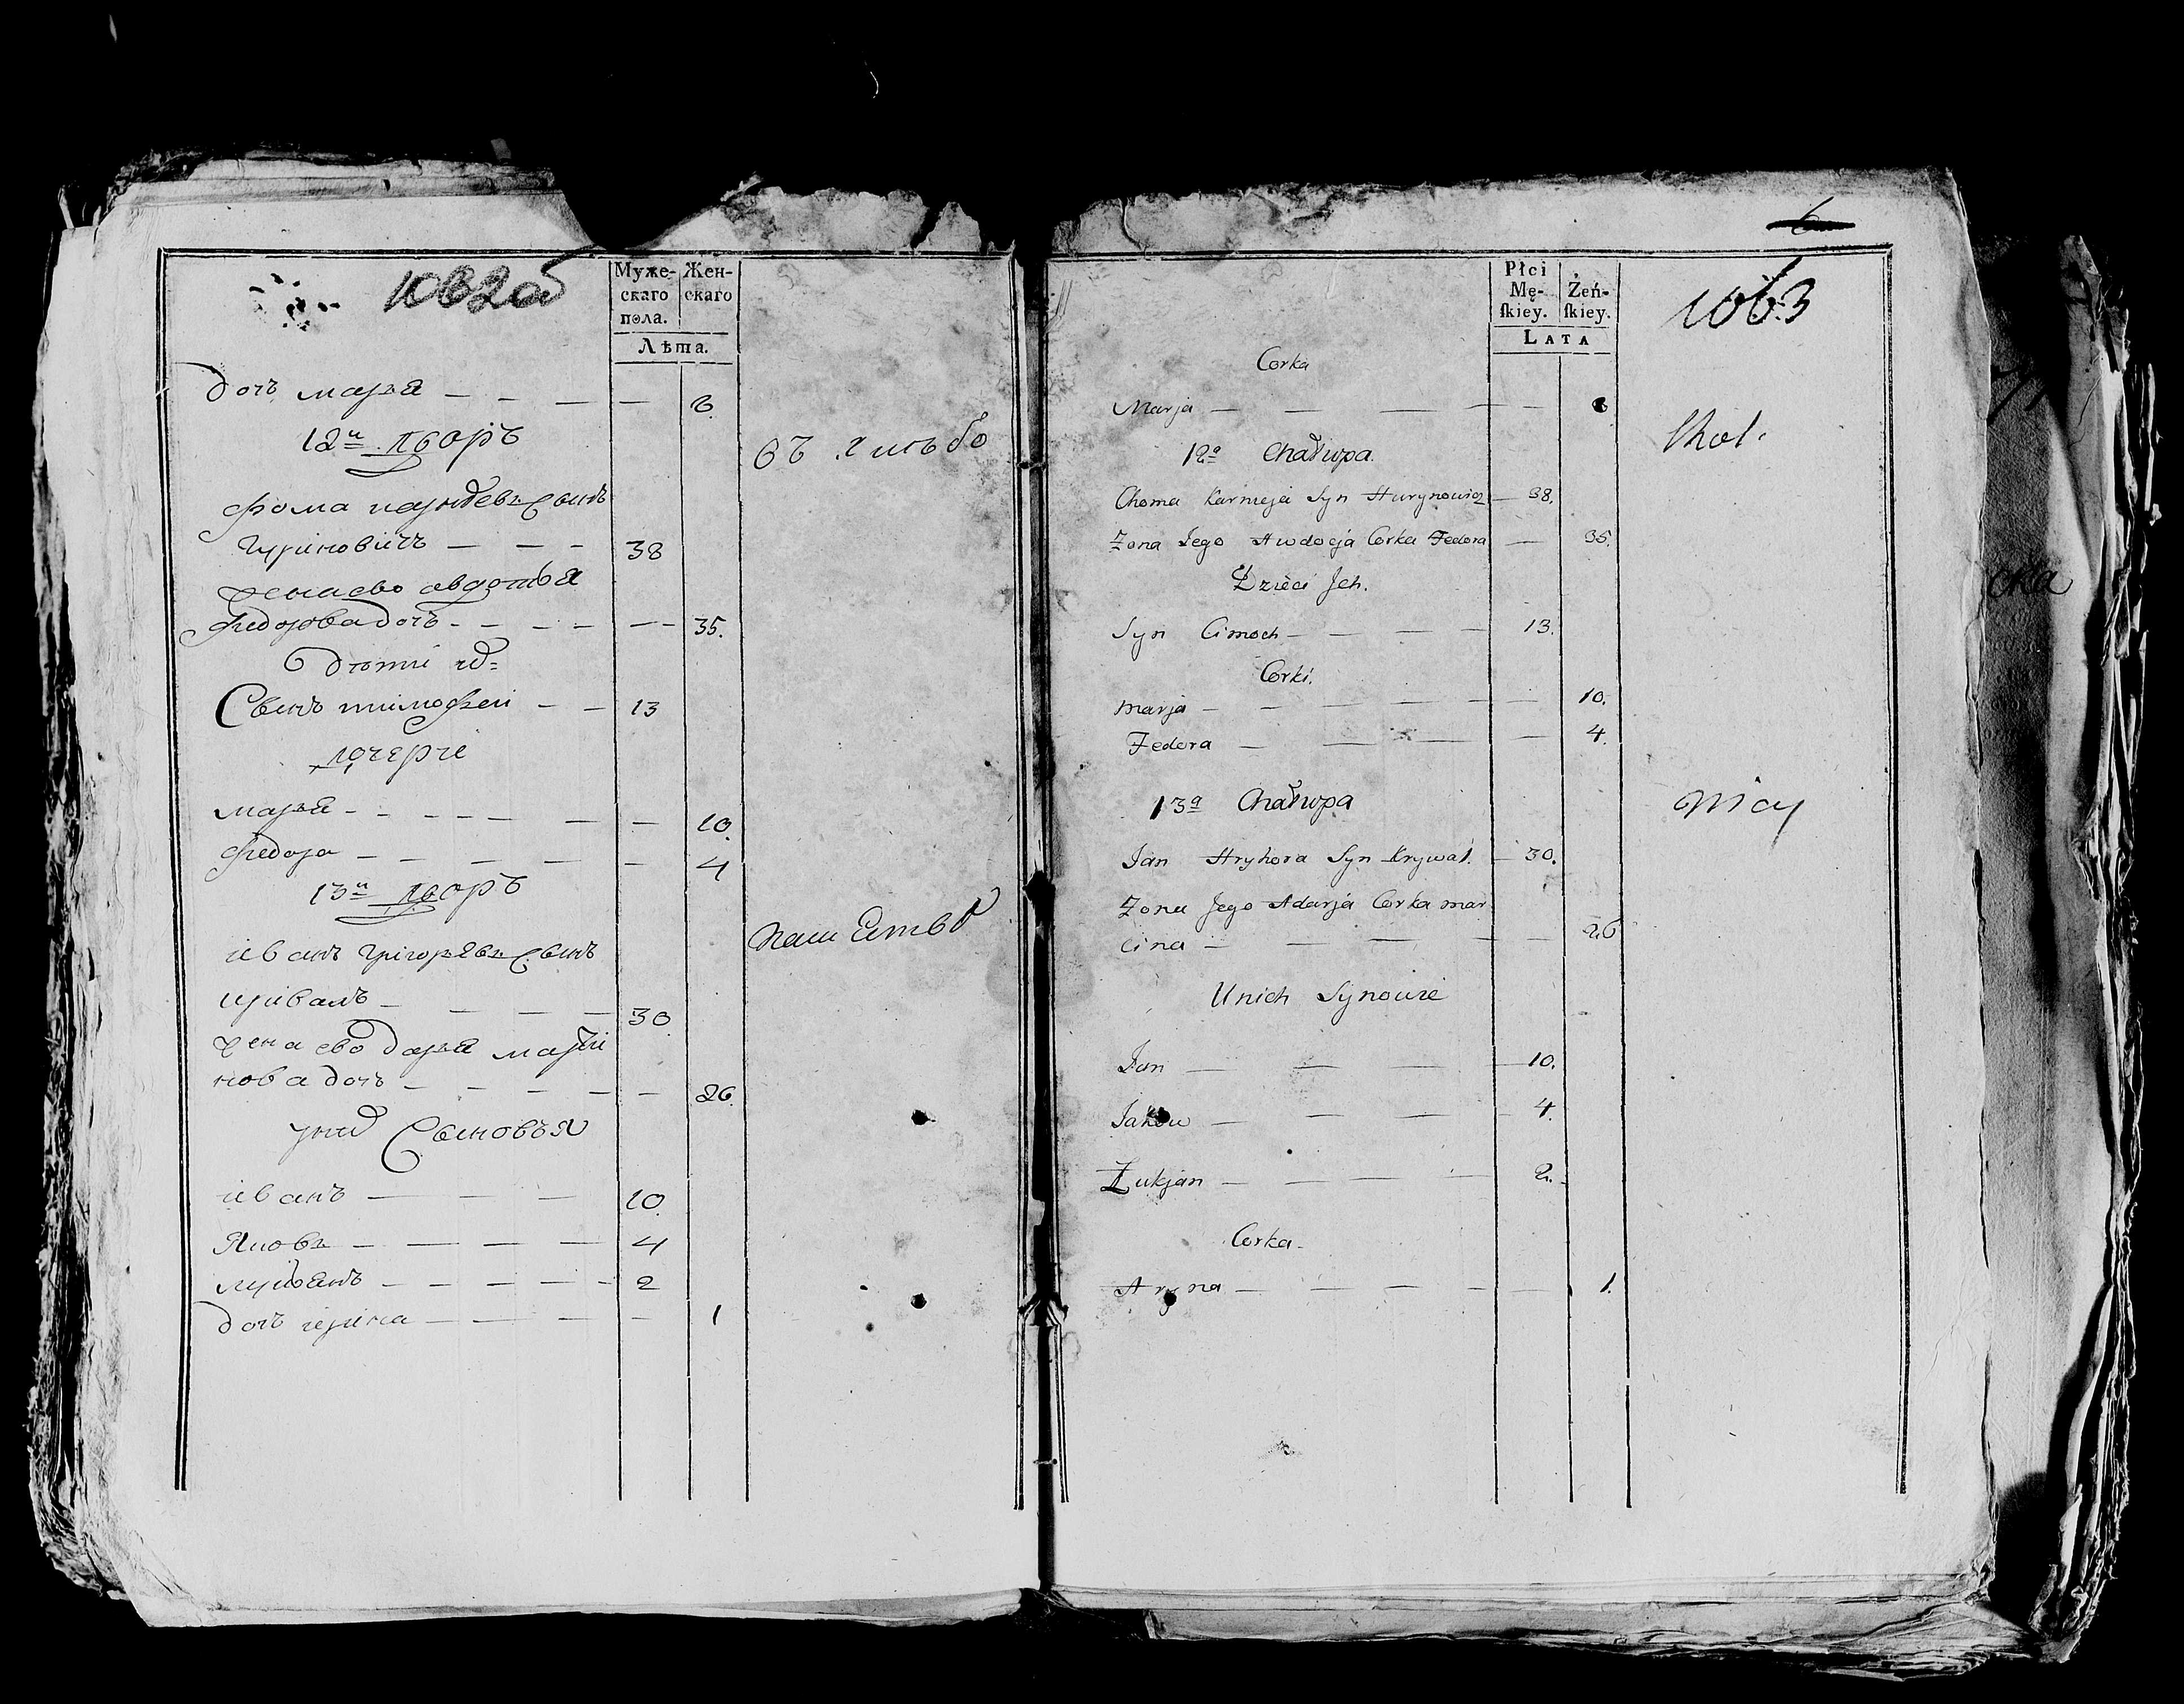 1062об
Муже-
скаго
пола.
Жен-
скаго
Лѣта.
дочь марья — — — — 8.
12й дворъ
фома карнѣевъ сынъ
гуриновичъ — — — 38
жена ево авдотья
федорова доч — — — — 35.
дѣти их
Сынъ тимофеи — — 13
дочери
марья — — — — — — 10.
федора — — — — — 4
13й дворъ
иванъ григорьевъ сынъ
кривалъ — — — — 30
жена ево дарья марти
нова доч — — — — — 26.
у них Сыновья
иванъ — — — 10.
Яковъ — — — — 4
лукьянъ — — — — — 2
дочь ирина — — — — — 1
6
1063
Płci
Mę-
ſkiey.
Żeń-
ſkiey.
LATA
Corka
Marja — — — — — 8
12a Chałupa.
Choma Karnieja Syn Hurynowicz — 38.
Zona Jego Awdocja Corka Fedora — 35.
Dzieci Jch.
Syn Cimoch — — — — 13.
Corki.
Marja — — — — — — 10.
Fedora — — — — 4.
13a Chałupa
Jan Hryhora Syn Krywal. — 30.
Zona Jego Adarja Corka mar
cina — — — — — 26
Unich Synowie
Jan — — — — 10.
Jakow — — — — 4.
Łukjan — — — — 2.
Corka.
Aryna — — — — — 1.